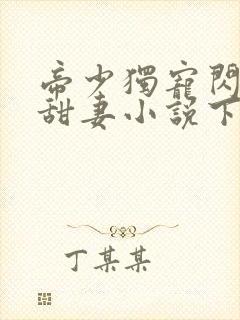 帝少獨寵閃
甜妻小說下
丁某某